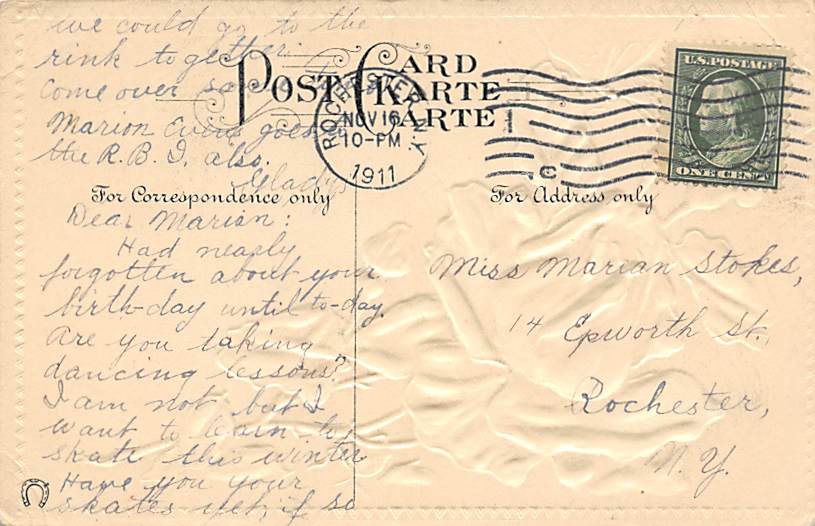 we could go to the
rink together.
Come over
Marion Evins goes to
the R.B.I. also.
Gladys
POST CARD
KARTE
CARTE
ROCHESTER N.Y.
NOV 16
10-PM
1911
1
U.S. POSTAGE
ONE CENT
For Correspondence only
For Address only
Dear Marian:
Had nearly
forgotten about your
birth-day until to-day.
Are you taking
dancing lessons?
I am not but I
want to learn to
skate this winter
Have you your
skates yet, if so
Miss Marian Stokes,
14 Epworth St.
Rochester,
N.Y.